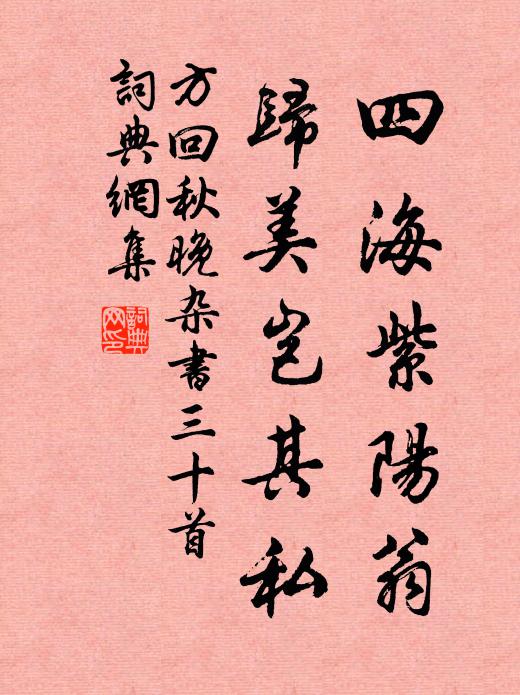 四海紫陽翁
歸美豈其私
方回秋晚杂書三十首
詞典網集
詞典網印